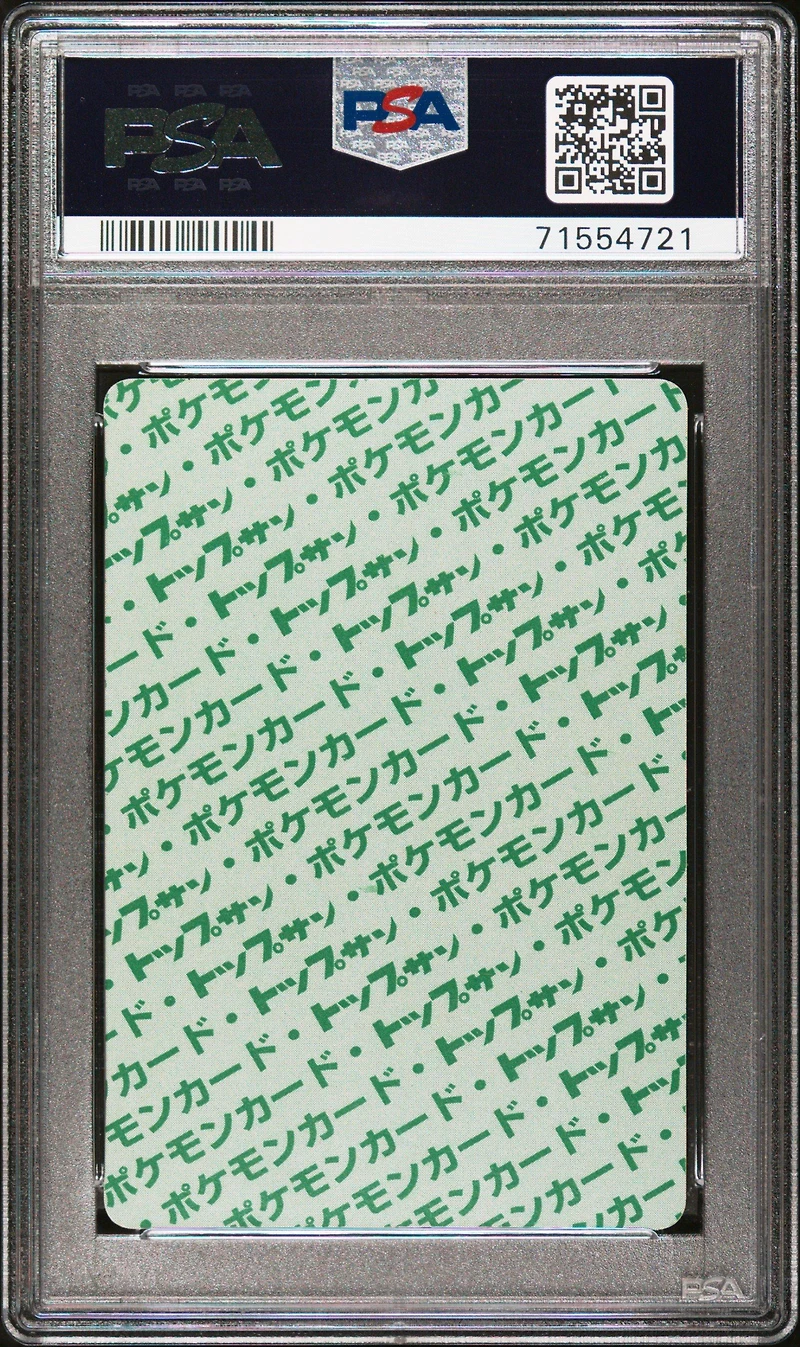 PSA PSA PSA
PSA
PSA PSA PSA
PSA
71554721
ケモ
・ポケモン
サン・ポケモン
ップサン・ポケモンカ
・トップサン・ポケモンカー
ード・トップサン・ポケモンカー
ンカード・トップサン・ポケモンカード
ケモンカード・トップサン・ポケモンカ
・ポケモンカード・トップサン・ポケモン
サン・ポケモンカード・トップサン・ポケ
ップサン・ポケモンカード・トップサン・
・トップサン・ポケモンカード・トップサ
ード・トップサン・ポケモンカード・ト
カード・トップサン・ポケモンカード・
モンカード・トップサン・ポケモンカー
ポケモンカード・トップサン・ポケモン
・ポケモンカード・トップサン・ポケ
ポケモンカード・トップサン・
ケモンカード・トップサ
モンカード・ト
ンカード・
カー
PSA